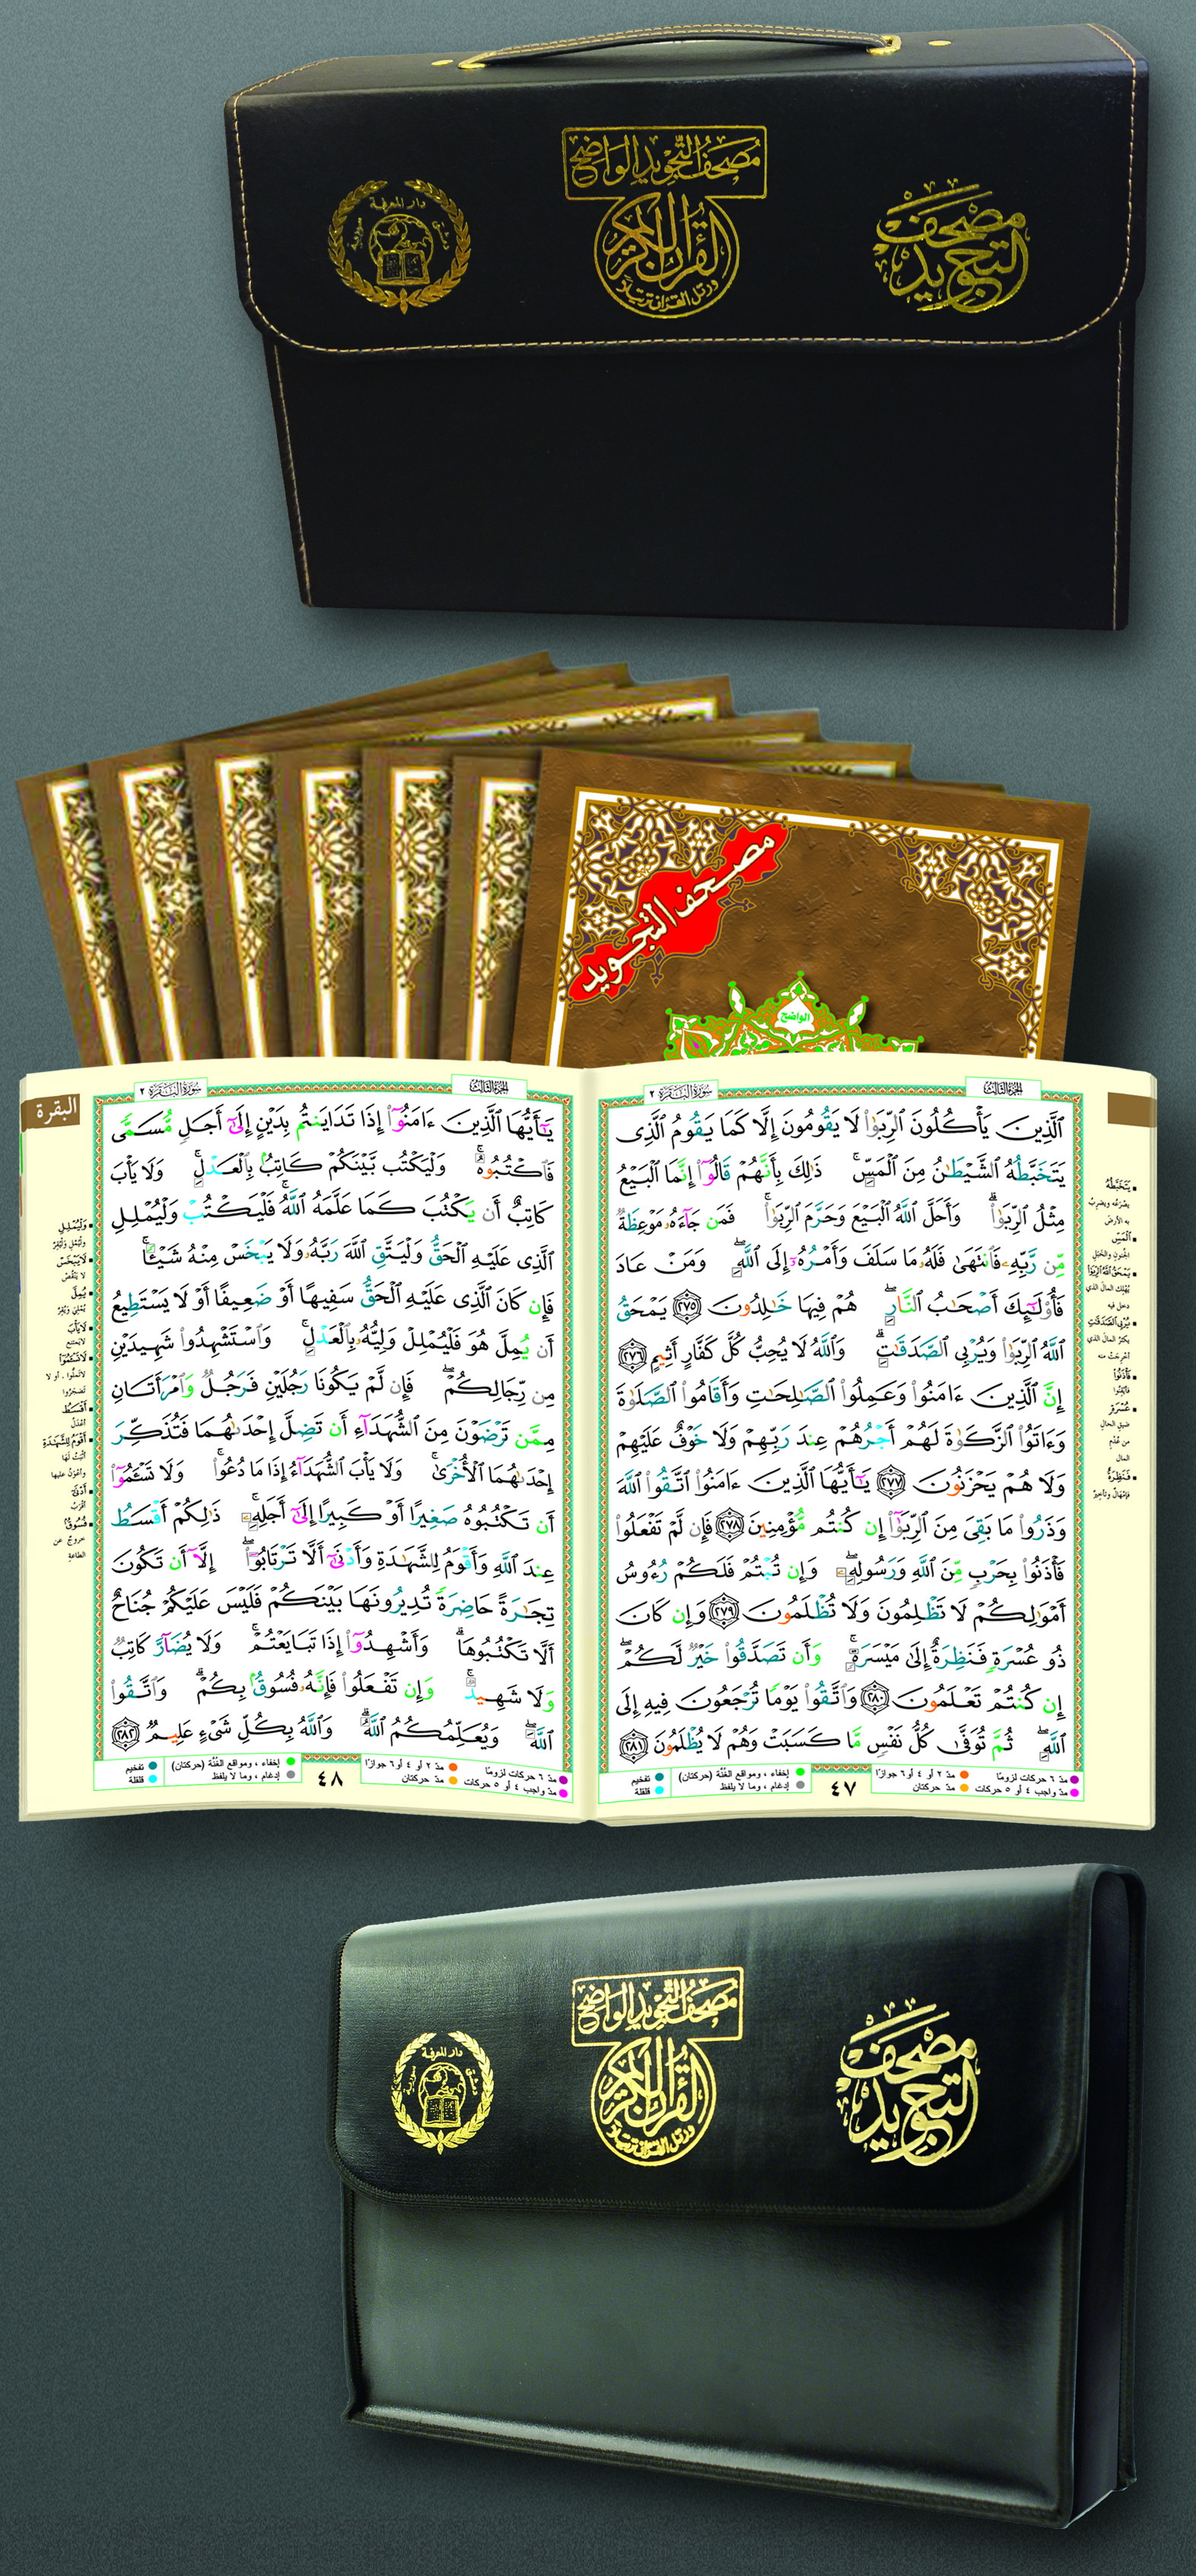 مُصْحَفُ التَّجْوِيدِ الوَاضِحِ
مصحف التجويد
القرآن الكريم
ورتل القرآن ترتيلا
دار المعرفة
مصحف التجويد
الواضح
سُورَةُ البَقَرَةِ ٢
الجزء الثالث
ٱلَّذِينَ يَأْكُلُونَ ٱلرِّبَوٰا۟ لَا يَقُومُونَ إِلَّا كَمَا يَقُومُ ٱلَّذِى
يَتَخَبَّطُهُ ٱلشَّيْطَـٰنُ مِنَ ٱلْمَسِّ ۚ ذَٰلِكَ بِأَنَّهُمْ قَالُوٓا۟ إِنَّمَا ٱلْبَيْعُ
مِثْلُ ٱلرِّبَوٰا۟ ۗ وَأَحَلَّ ٱللَّهُ ٱلْبَيْعَ وَحَرَّمَ ٱلرِّبَوٰا۟ ۚ فَمَن جَآءَهُۥ مَوْعِظَةٌ
مِّن رَّبِّهِۦ فَٱنتَهَىٰ فَلَهُۥ مَا سَلَفَ وَأَمْرُهُۥٓ إِلَى ٱللَّهِ ۖ وَمَنْ عَادَ
فَأُو۟لَـٰٓئِكَ أَصْحَـٰبُ ٱلنَّارِ ۖ هُمْ فِيهَا خَـٰلِدُونَ ٢٧٥ يَمْحَقُ
ٱللَّهُ ٱلرِّبَوٰا۟ وَيُرْبِى ٱلصَّدَقَـٰتِ ۗ وَٱللَّهُ لَا يُحِبُّ كُلَّ كَفَّارٍ أَثِيمٍ ٢٧٦
إِنَّ ٱلَّذِينَ ءَامَنُوا۟ وَعَمِلُوا۟ ٱلصَّـٰلِحَـٰتِ وَأَقَامُوا۟ ٱلصَّلَوٰةَ
وَءَاتَوُا۟ ٱلزَّكَوٰةَ لَهُمْ أَجْرُهُمْ عِندَ رَبِّهِمْ وَلَا خَوْفٌ عَلَيْهِمْ
وَلَا هُمْ يَحْزَنُونَ ٢٧٧ يَـٰٓأَيُّهَا ٱلَّذِينَ ءَامَنُوا۟ ٱتَّقُوا۟ ٱللَّهَ
وَذَرُوا۟ مَا بَقِىَ مِنَ ٱلرِّبَوٰٓا۟ إِن كُنتُم مُّؤْمِنِينَ ٢٧٨ فَإِن لَّمْ تَفْعَلُوا۟
فَأْذَنُوا۟ بِحَرْبٍ مِّنَ ٱللَّهِ وَرَسُولِهِۦ ۖ وَإِن تُبْتُمْ فَلَكُمْ رُءُوسُ
أَمْوَٰلِكُمْ لَا تَظْلِمُونَ وَلَا تُظْلَمُونَ ٢٧٩ وَإِن كَانَ
ذُو عُسْرَةٍ فَنَظِرَةٌ إِلَىٰ مَيْسَرَةٍ ۚ وَأَن تَصَدَّقُوا۟ خَيْرٌ لَّكُمْ ۖ
إِن كُنتُمْ تَعْلَمُونَ ٢٨٠ وَٱتَّقُوا۟ يَوْمًا تُرْجَعُونَ فِيهِ إِلَى
ٱللَّهِ ۖ ثُمَّ تُوَفَّىٰ كُلُّ نَفْسٍ مَّا كَسَبَتْ وَهُمْ لَا يُظْلَمُونَ ٢٨١
مدّ ٦ حركات لزومًا
مدّ ٢ أو ٤ أو ٦ جوازًا
إخفاء ، ومواقع الغُنَّة (حركتان)
تفخيم
مدّ واجب ٤ أو ٥ حركات
مدّ حركتان
إدغام ، وما لا يلفظ
قلقلة
٤٧
البقرة
سُورَةُ البَقَرَةِ ٢
الجزء الثالث
يَـٰٓأَيُّهَا ٱلَّذِينَ ءَامَنُوٓا۟ إِذَا تَدَايَنتُم بِدَيْنٍ إِلَىٰٓ أَجَلٍ مُّسَمًّى
فَٱكْتُبُوهُ ۚ وَلْيَكْتُب بَّيْنَكُمْ كَاتِبٌۢ بِٱلْعَدْلِ ۚ وَلَا يَأْبَ
كَاتِبٌ أَن يَكْتُبَ كَمَا عَلَّمَهُ ٱللَّهُ ۚ فَلْيَكْتُبْ وَلْيُمْلِلِ
ٱلَّذِى عَلَيْهِ ٱلْحَقُّ وَلْيَتَّقِ ٱللَّهَ رَبَّهُۥ وَلَا يَبْخَسْ مِنْهُ شَيْـًٔا ۚ
فَإِن كَانَ ٱلَّذِى عَلَيْهِ ٱلْحَقُّ سَفِيهًا أَوْ ضَعِيفًا أَوْ لَا يَسْتَطِيعُ
أَن يُمِلَّ هُوَ فَلْيُمْلِلْ وَلِيُّهُۥ بِٱلْعَدْلِ ۚ وَٱسْتَشْهِدُوا۟ شَهِيدَيْنِ
مِن رِّجَالِكُمْ ۖ فَإِن لَّمْ يَكُونَا رَجُلَيْنِ فَرَجُلٌ وَٱمْرَأَتَانِ
مِمَّن تَرْضَوْنَ مِنَ ٱلشُّهَدَآءِ أَن تَضِلَّ إِحْدَىٰهُمَا فَتُذَكِّرَ
إِحْدَىٰهُمَا ٱلْأُخْرَىٰ ۚ وَلَا يَأْبَ ٱلشُّهَدَآءُ إِذَا مَا دُعُوا۟ ۚ وَلَا تَسْـَٔمُوٓا۟
أَن تَكْتُبُوهُ صَغِيرًا أَوْ كَبِيرًا إِلَىٰٓ أَجَلِهِۦ ۚ ذَٰلِكُمْ أَقْسَطُ
عِندَ ٱللَّهِ وَأَقْوَمُ لِلشَّهَـٰدَةِ وَأَدْنَىٰٓ أَلَّا تَرْتَابُوٓا۟ ۖ إِلَّآ أَن تَكُونَ
تِجَـٰرَةً حَاضِرَةً تُدِيرُونَهَا بَيْنَكُمْ فَلَيْسَ عَلَيْكُمْ جُنَاحٌ
أَلَّا تَكْتُبُوهَا ۗ وَأَشْهِدُوٓا۟ إِذَا تَبَايَعْتُمْ ۚ وَلَا يُضَآرَّ كَاتِبٌ
وَلَا شَهِيدٌ ۚ وَإِن تَفْعَلُوا۟ فَإِنَّهُۥ فُسُوقٌۢ بِكُمْ ۗ وَٱتَّقُوا۟
ٱللَّهَ ۖ وَيُعَلِّمُكُمُ ٱللَّهُ ۗ وَٱللَّهُ بِكُلِّ شَىْءٍ عَلِيمٌ ٢٨٢
مدّ ٦ حركات لزومًا
مدّ ٢ أو ٤ أو ٦ جوازًا
إخفاء ، ومواقع الغُنَّة (حركتان)
تفخيم
مدّ واجب ٤ أو ٥ حركات
مدّ حركتان
إدغام ، وما لا يلفظ
قلقلة
٤٨
مُصْحَفُ التَّجْوِيدِ الوَاضِحِ
مصحف التجويد
القرآن الكريم
ورتل القرآن ترتيلا
دار المعرفة